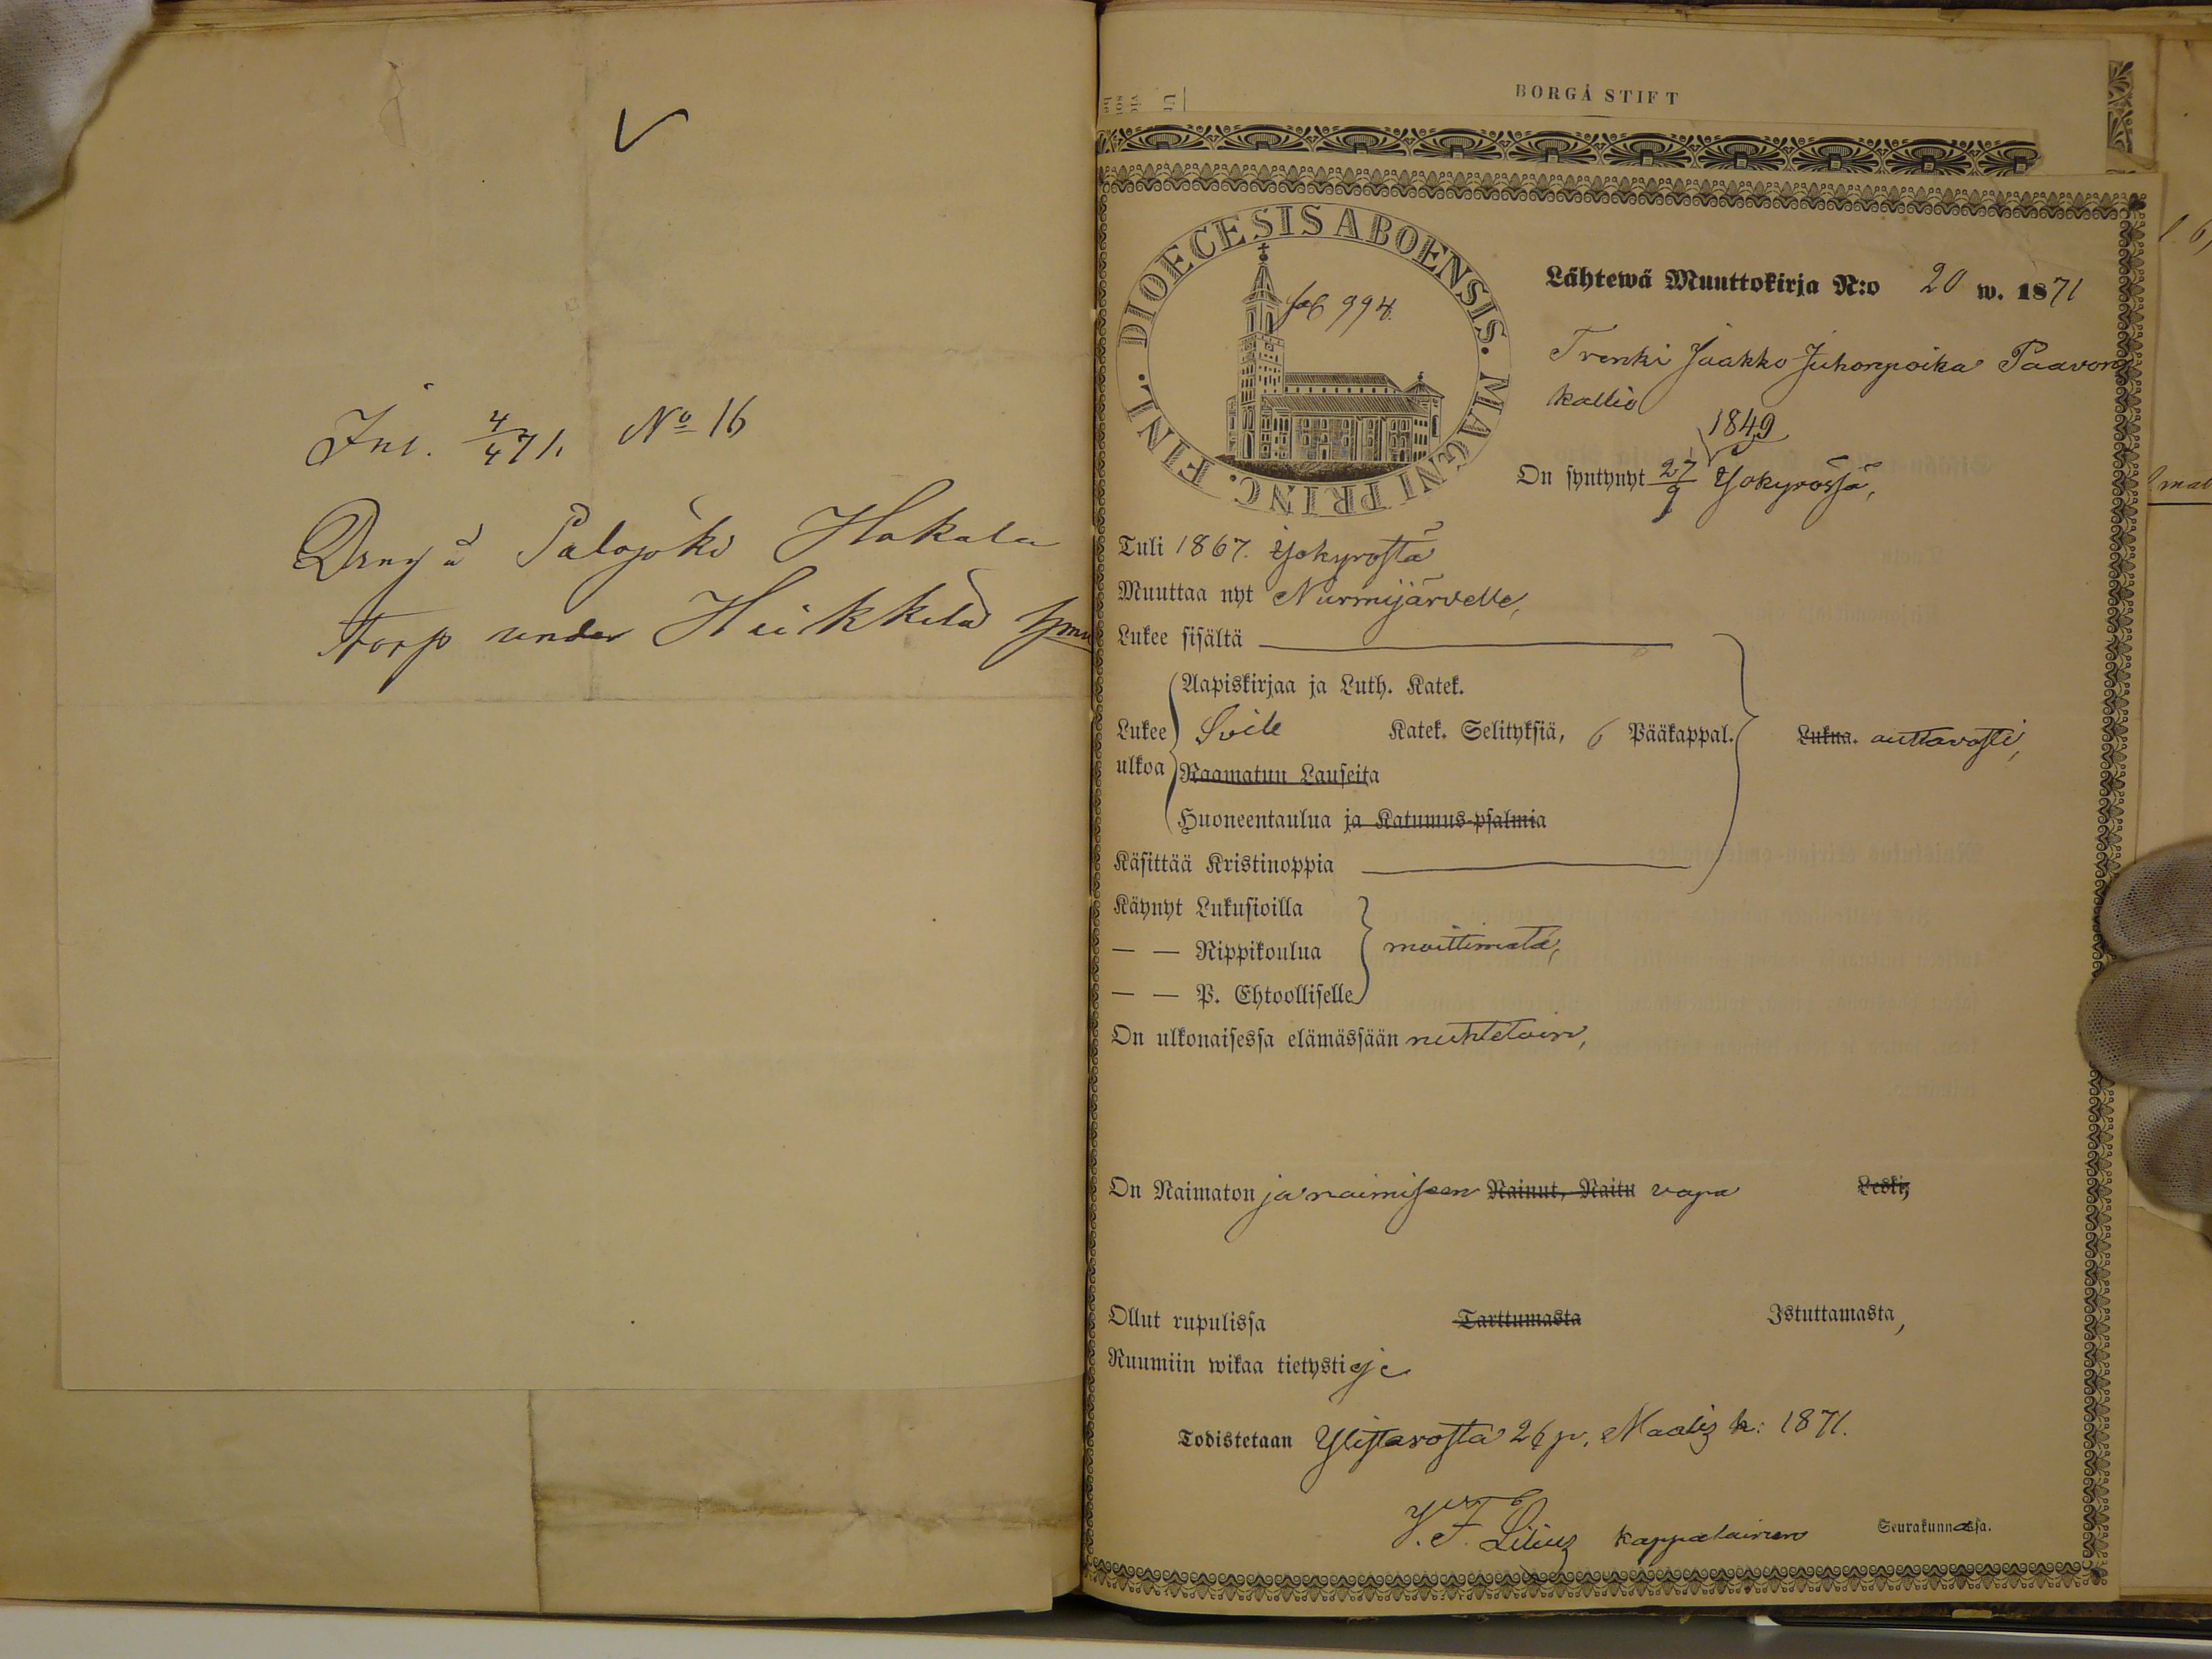 Inl. 4/4 71. No 16
Dräng å Palojoki Hakala
torp under Heikkilä hmn
BORGÅ STIFT
DIOECESIS ABOENSIS. MAGNI PRINC. FINL.
994.
Lähtewä Muuttokirja N:o 20 w. 1871
Trenki Jaakko Juhonpoika Paavon
kallio
1849
On syntynyt 27/9 Isokyrössä,
Tuli 1867. Isokyröstä
Muuttaa nyt Nurmijärvelle,
Lukee sisältä
Aapiskirjaa ja Luth. Katek.
Lukee ulkoa Svib Katek. Selityksiä, 6 Pääkappal. Lukua. auttavasti,
Raamatun Lauseita
Huoneentaulua ja Katumus-psalmia
Käsittää Kristinoppia
Käynyt Lukusioilla
— — Rippikoulua moittimata,
— — P. Ehtoolliselle
On ulkonaisessa elämässään nuhtetoin,
On Naimaton ja naimiseen Nainut, Naitu vapa Leski,
Ollut rupulissa Tarttumasta Istuttamasta,
Ruumiin wikaa tietysti ej
Todistetaan Ylistarosta 26 p. Maalis k: 1871.
V. F. Lilius kappalainen Seurakunnassa.